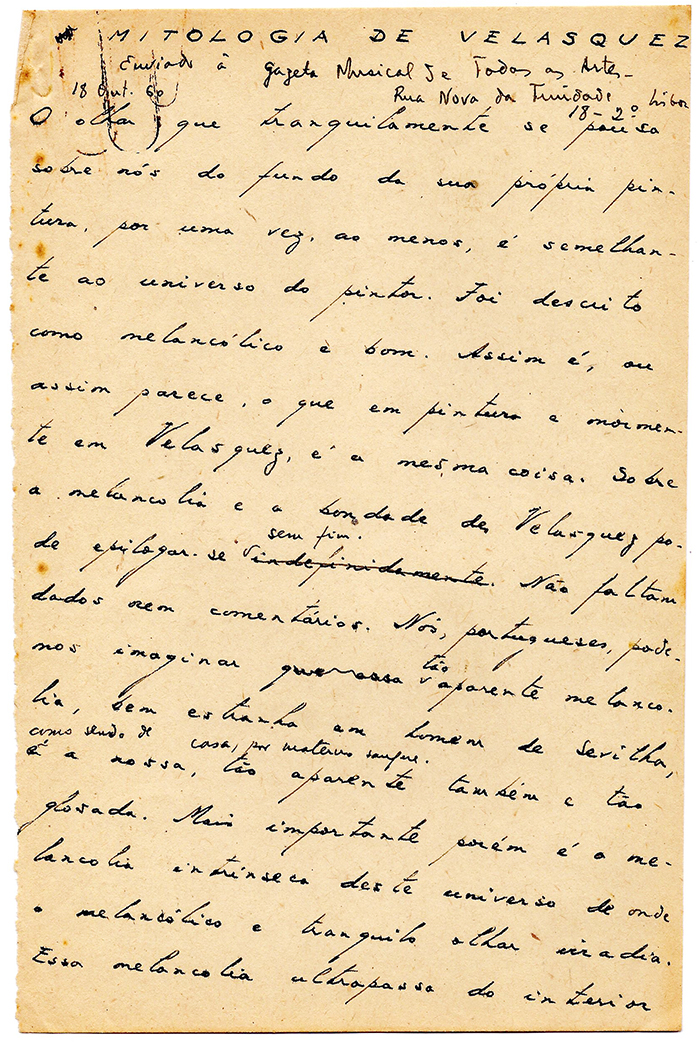 MITOLOGIA DE VELASQUEZ
Enviado à Gazeta Musical de Todas as Artes -
18 Out. 60 Rua Nova da Trindade Lisboa
18 - 2º
O olhar que tranquilamente se pousa
sobre nós do fundo da sua própria pin-
tura, por uma vez, ao menos, é semelhan-
te ao universo do pintor. Foi descrito
como melancólico e bom. Assim é, ou
assim parece, o que em pintura e mòrmen-
te em Velasquez, é a mesma coisa. Sobre
a melancolia e a bondade de Velasquez po-
sem fim.
de epilogar-se indefinidamente. Não faltam
dados nem comentários. Nós, portugueses, pode-
tão
mos imaginar que essa aparente melanco-
lia, bem estranha em homem de Sevilha,
como sendo de casa, por materno sangue.
é a nossa, tão aparente também e tão
glosada. Mais importante porém é a me-
lancolia intrínseca deste universo de onde
o melancólico e tranquilo olhar irradia.
Essa melancolia ultrapassa do interior